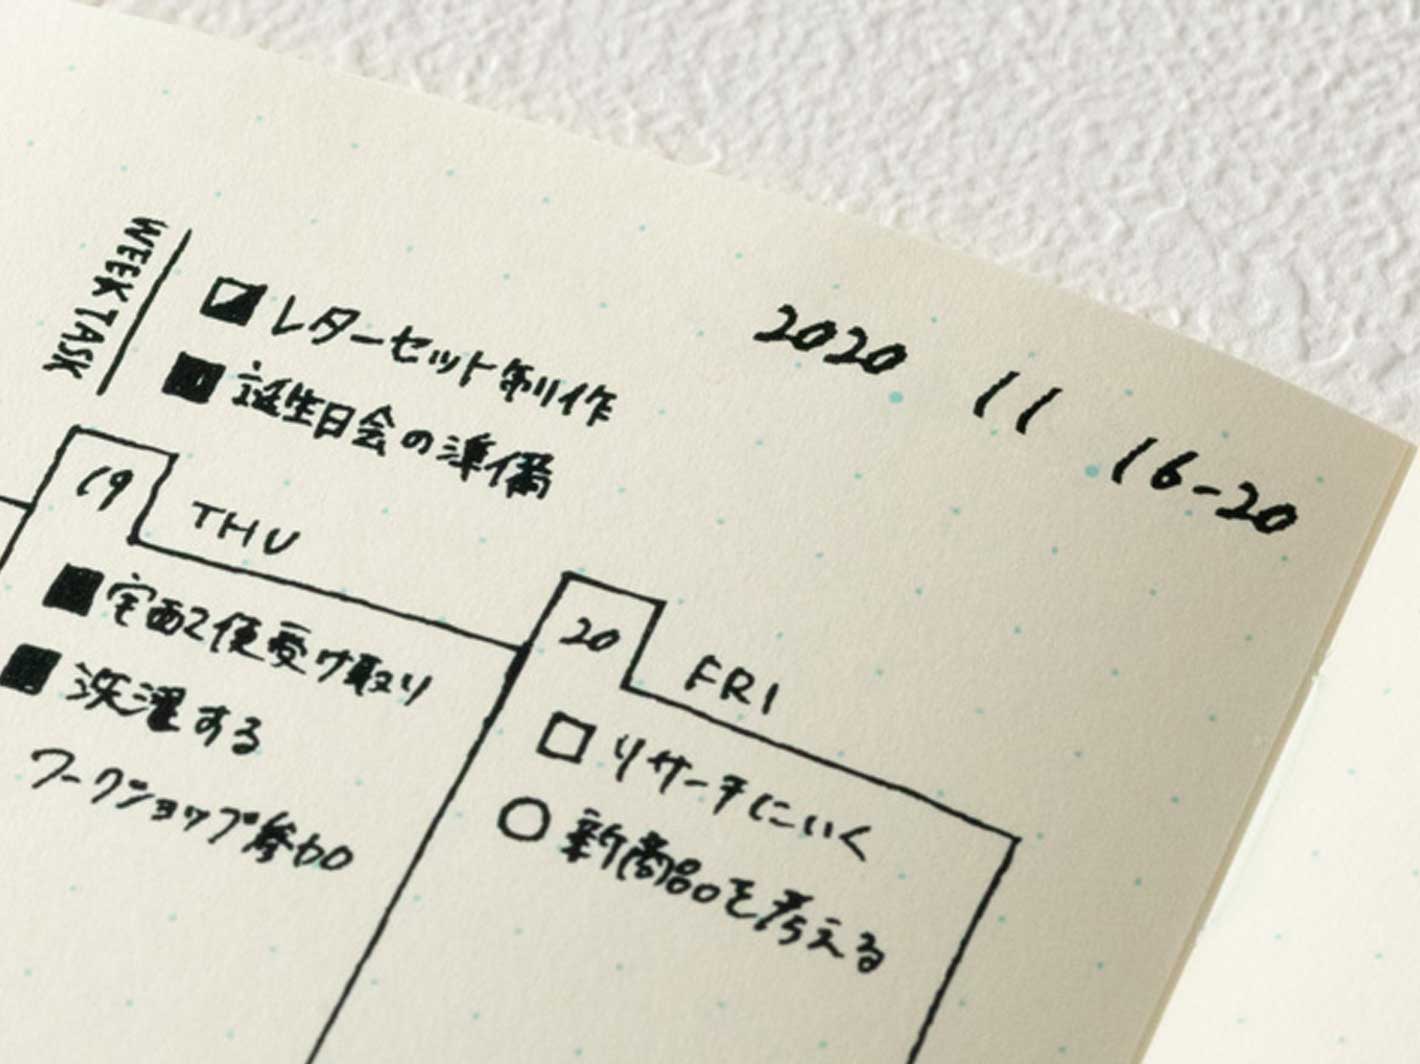 2020 11 16-20
WEEK TASK
レターセット制作
誕生日会の準備
19 THU
宅配便受け取り
洗濯する
ワークショップ参加
20 FRI
リサーチにいく
新商品を考える